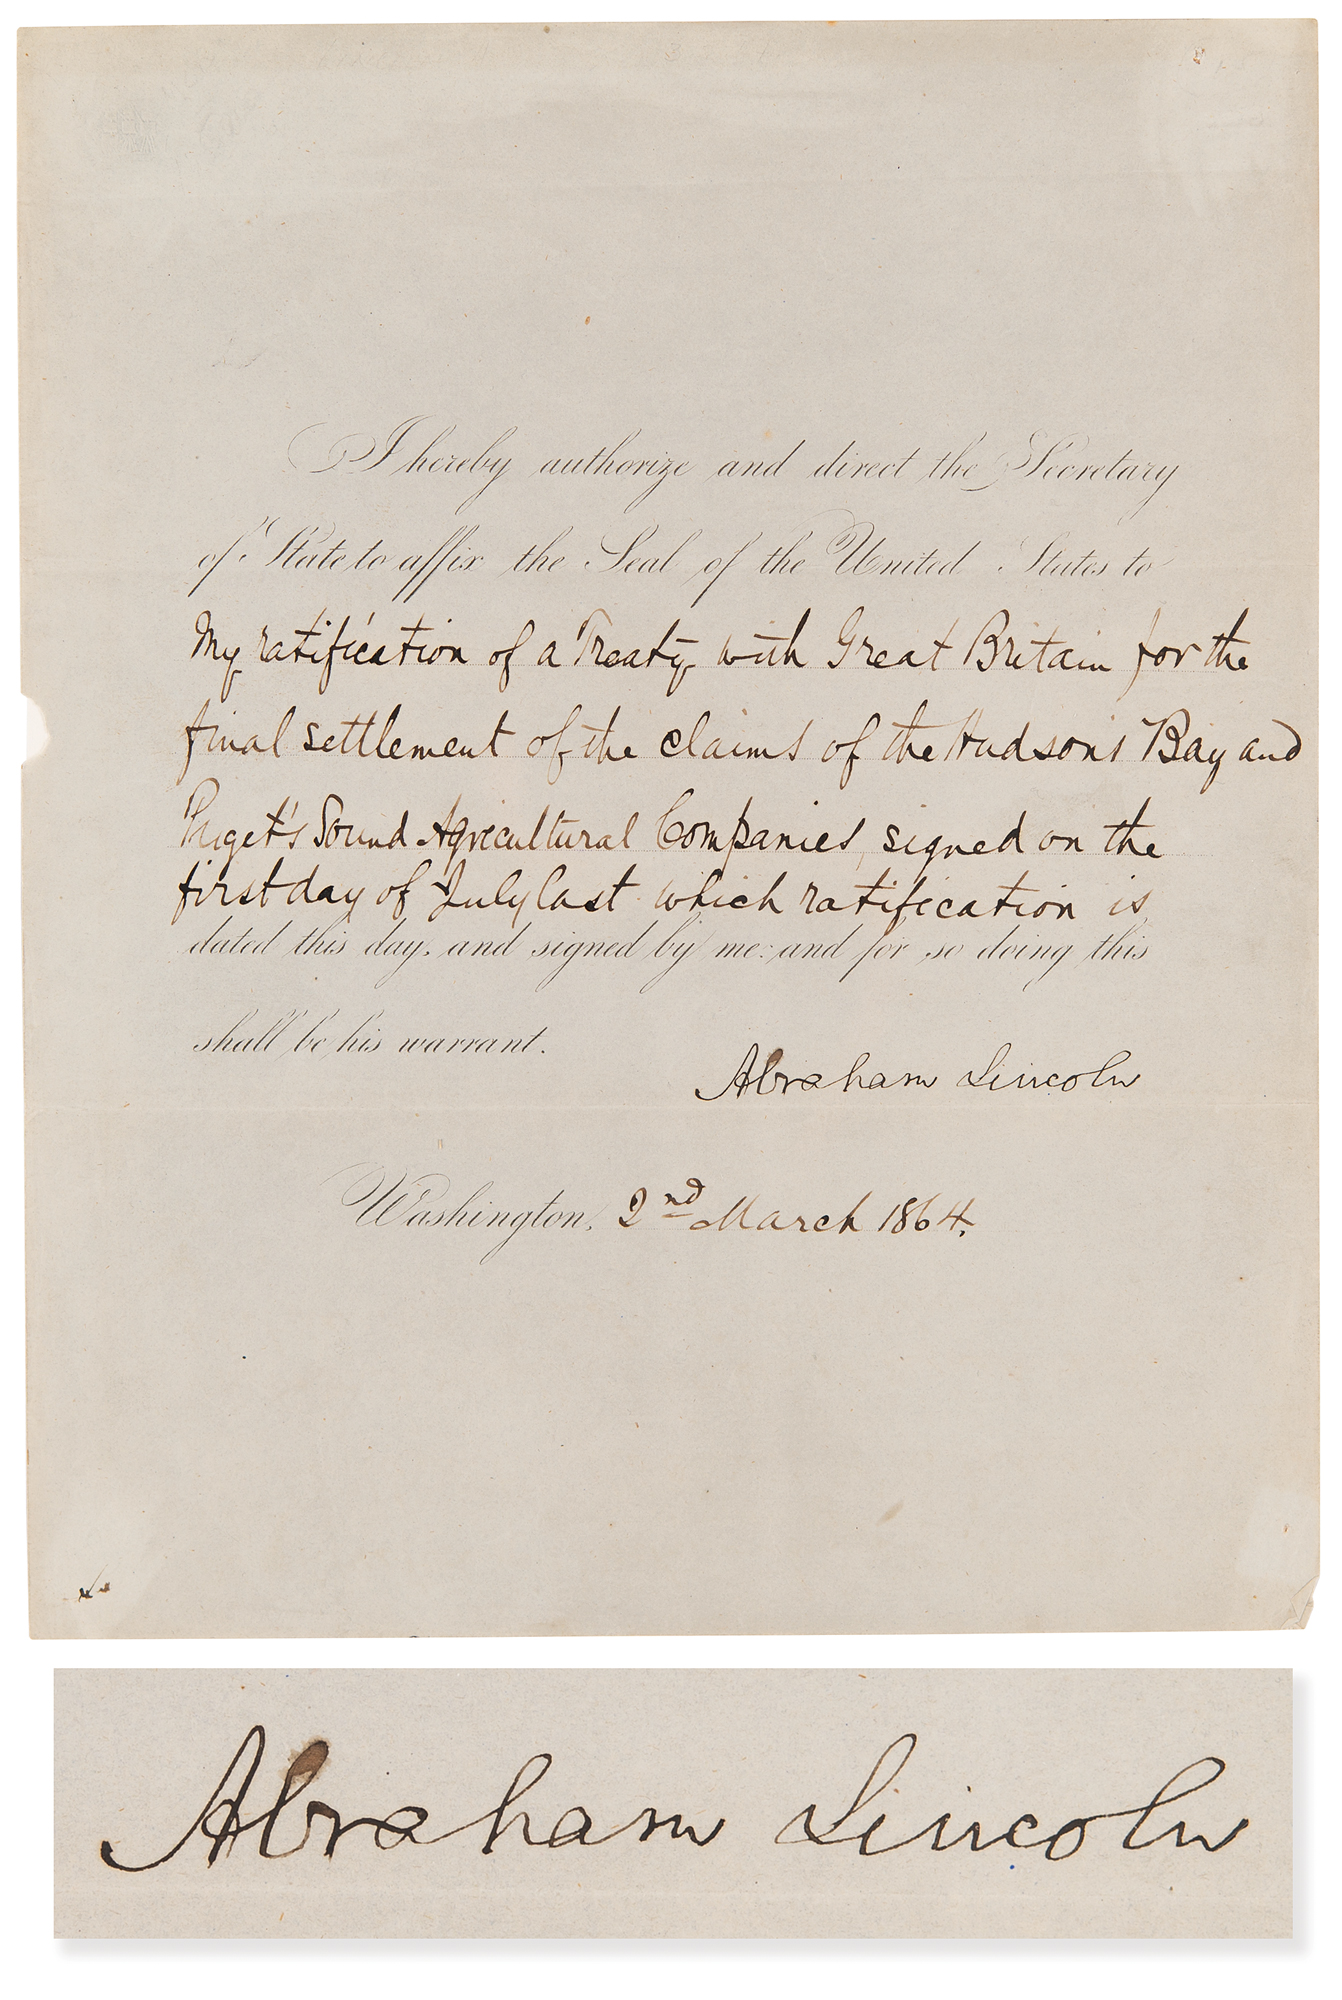 I hereby authorize and direct the Secretary
of State to affix the Seal of the United States to
my ratification of a Treaty with Great Britain for the
final settlement of the claims of the Hudson's Bay and
Puget's Sound Agricultural Companies, signed on the
first day of July last which ratification is
dated this day, and signed by me: and for so doing this
shall be his warrant.
Abraham Lincoln
Washington, 2nd March 1864.
Abraham Lincoln